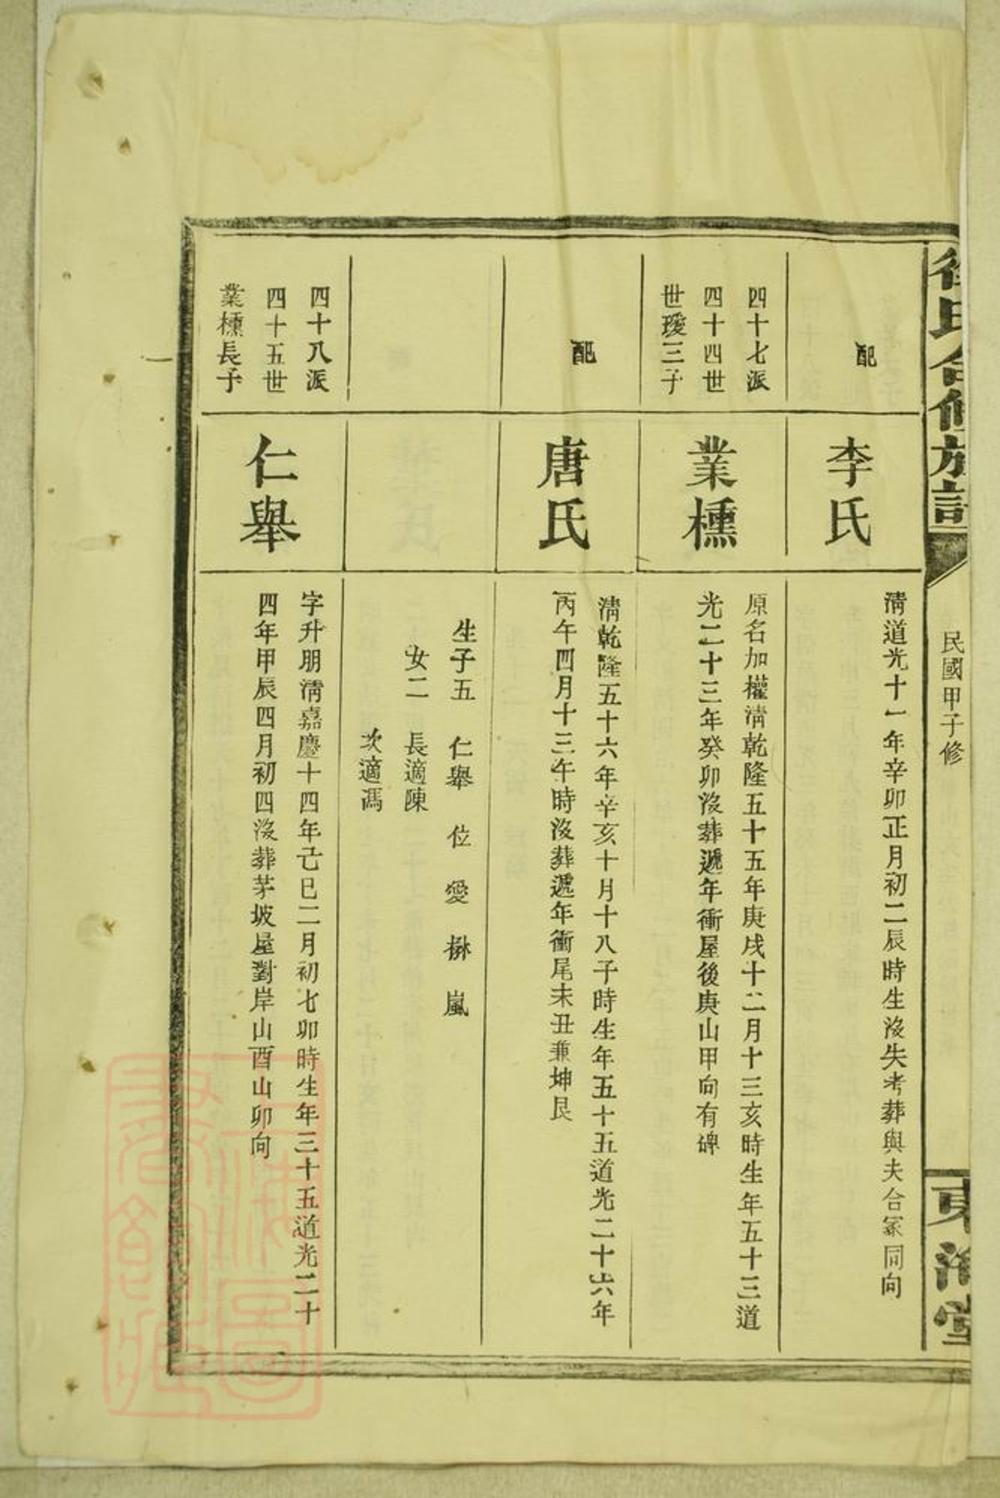 徐氏合修族譜
民國甲子修
東海堂
配
李氏
清道光十一年辛卯正月初二辰時生沒失考葬與夫合冢同向
四十七派
四十四世
世璦三子
業櫄
原名加權清乾隆五十五年庚戌十二月十三亥時生年五十三道
光二十三年癸卯沒葬遞年衝屋後庚山甲向有碑
配
唐氏
清乾隆五十六年辛亥十月十八子時生年五十五道光二十六年
丙午四月十三午時沒葬遞年衝尾未丑兼坤艮
生子五 仁舉 位 愛 楙 嵐
女二 長適陳
次適馮
四十八派
四十五世
業櫄長子
仁舉
字升朋清嘉慶十四年己巳二月初七卯時生年三十五道光二十
四年甲辰四月初四沒葬茅坡屋對岸山酉山卯向
上海圖
書館藏